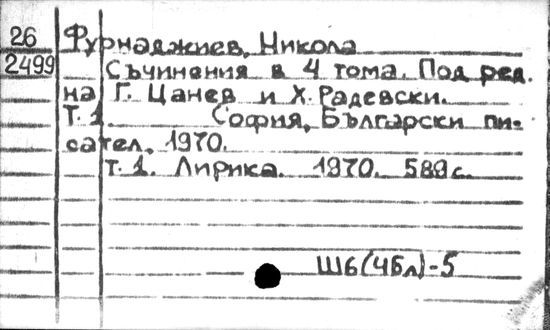 26
2499
Фурнаджиев, Никола
Съчинения в 4 тома. Под ред.
на Г. Цанев и Х. Радевски.
Т. 1. София, Български пи-
сател, 1970.
т. 1. Лирика. 1970. 589 с.
Ш6(4Бл)-5